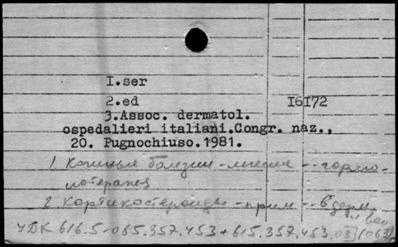 I.ser
2.ed I6I72
3.Assoc. dermatol.
ospedalieri italiani.Congr. naz.,
20. Pugnochiuso.1981.
1 Кожные болезни - лечение - гормо-
нотерапия
2. Кортикостероиды - прим. - в дерм.
и вен.
УДК 616.5-085.357.453+615.357.453.03](063)